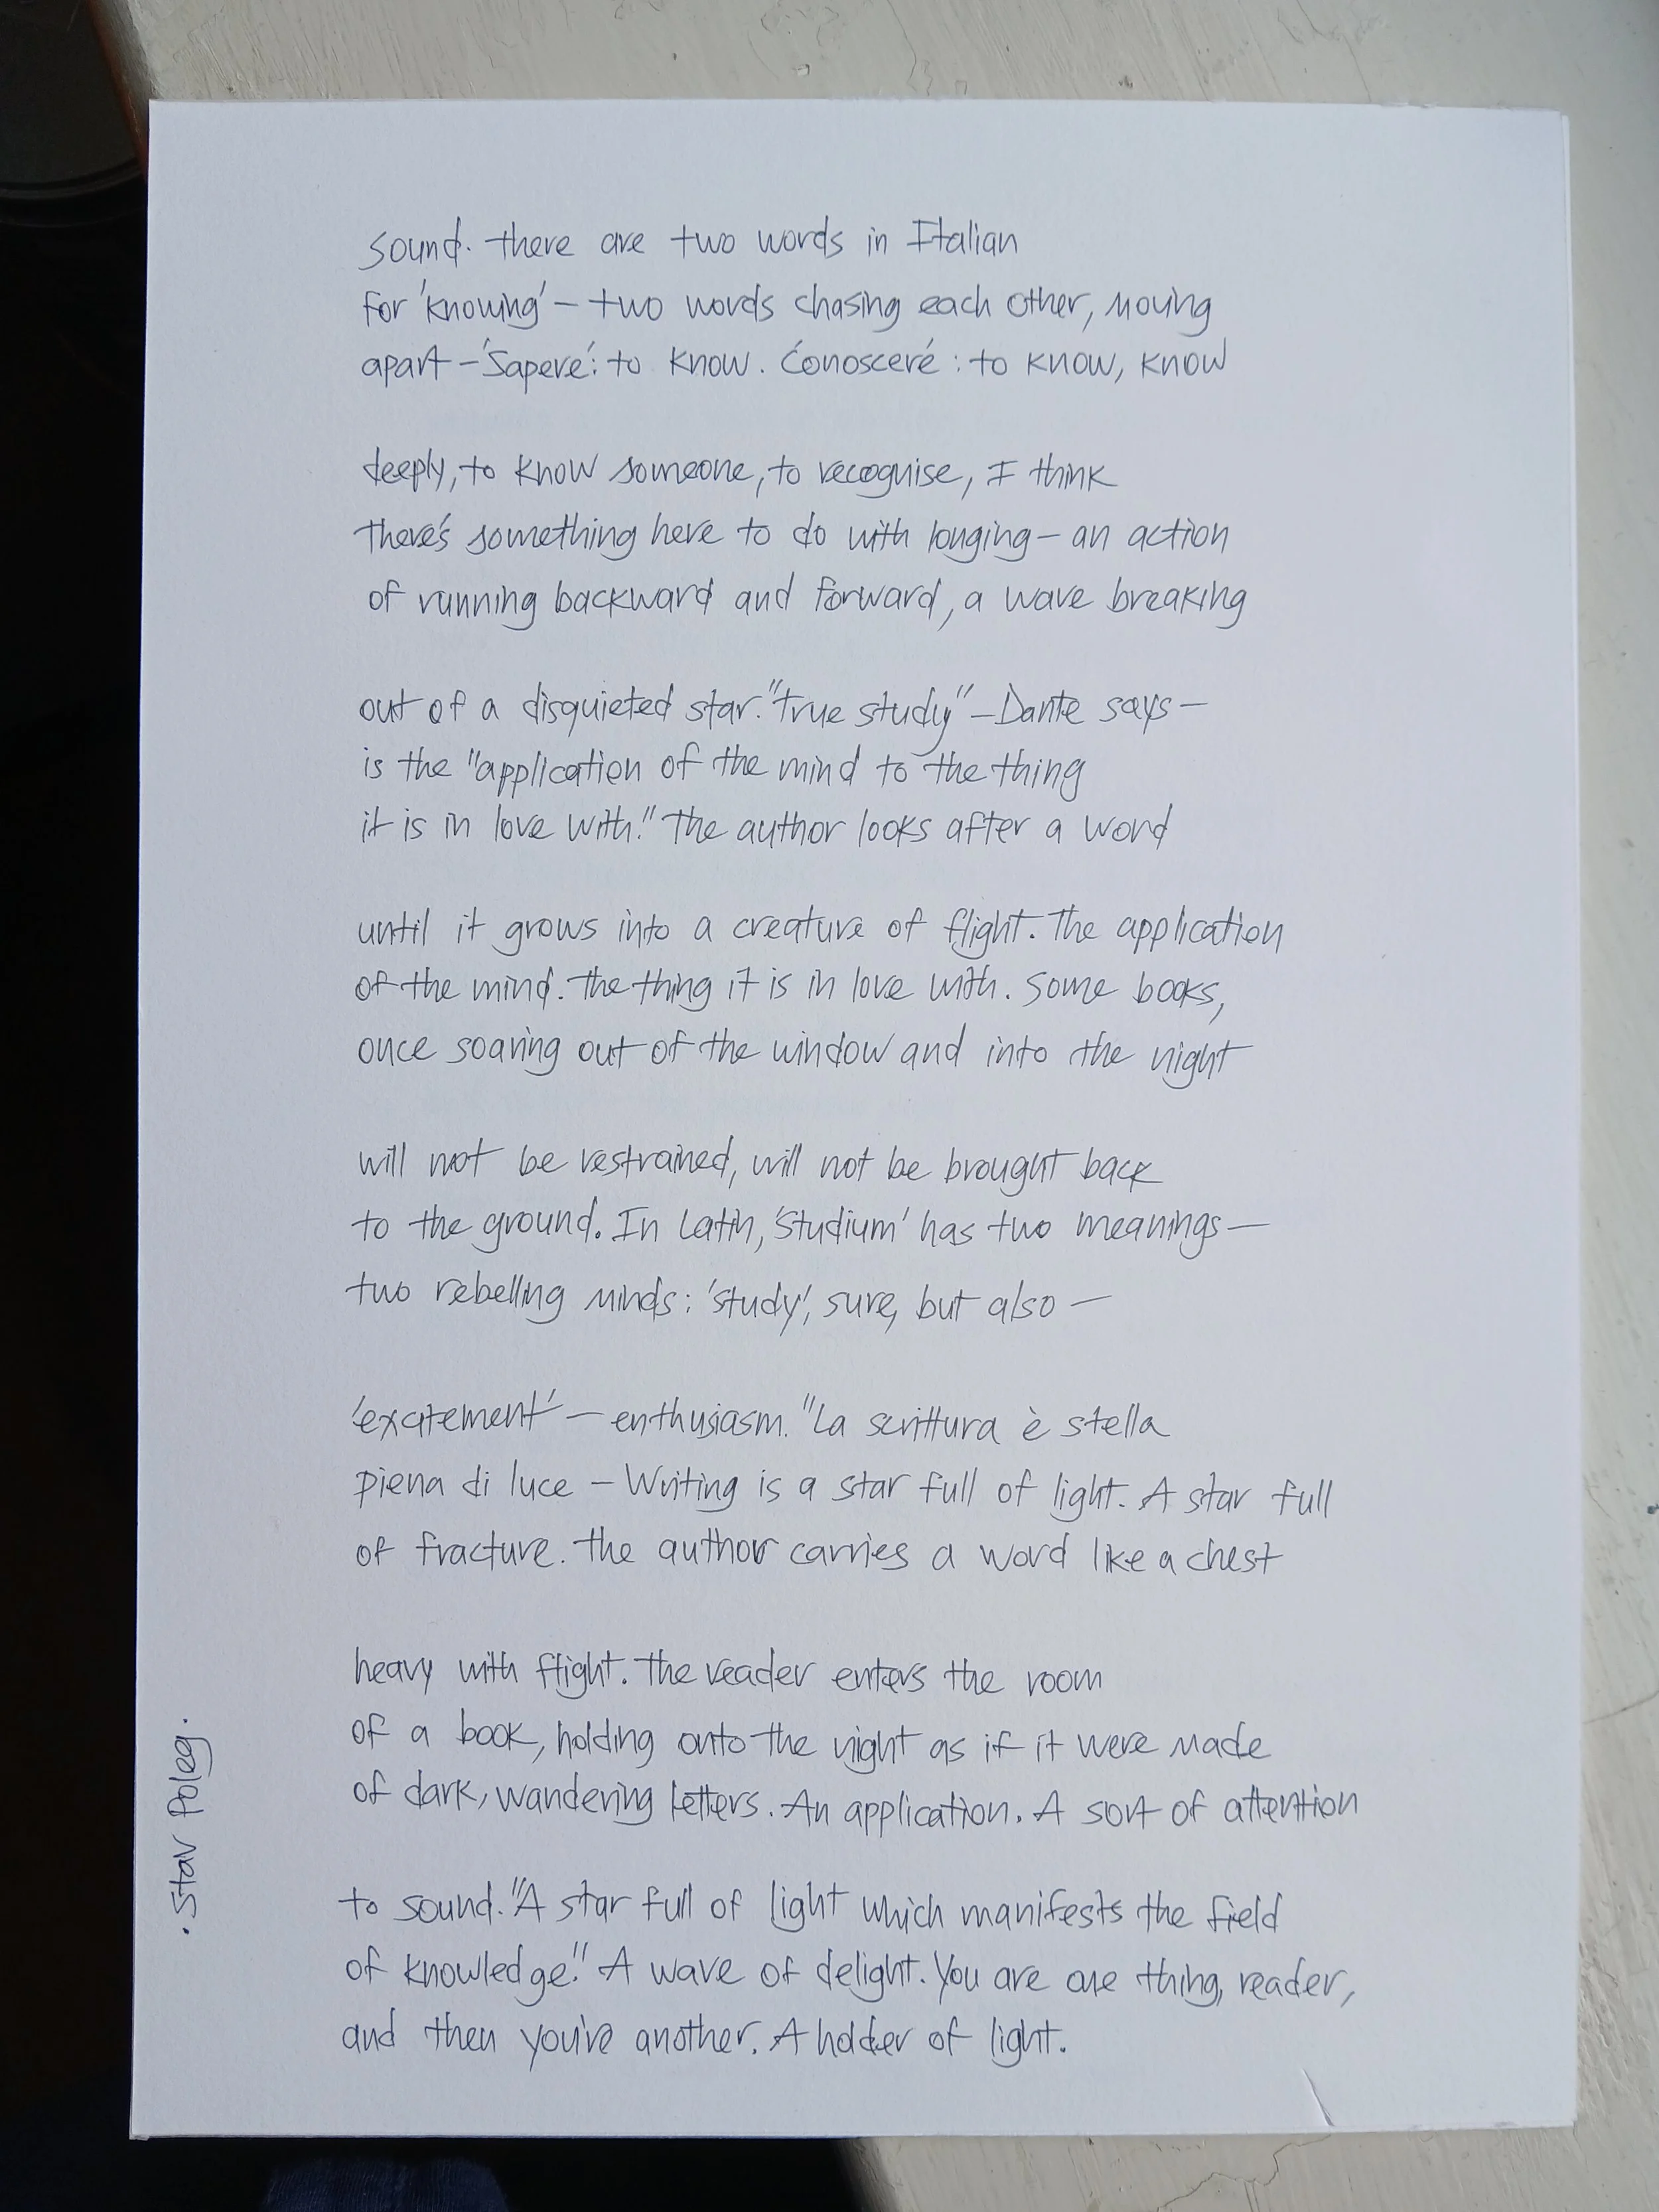 sound. There are two words in Italian
for 'knowing' – two words chasing each other, moving
apart – 'Sapere': to know. 'Conoscere': to know, know
deeply, to know someone, to recognise, I think
there's something here to do with longing – an action
of running backward and forward, a wave breaking
out of a disquieted star. "True study" – Dante says –
is the "application of the mind to the thing
it is in love with." The author looks after a word
until it grows into a creature of flight. The application
of the mind. The thing it is in love with. Some books,
once soaring out of the window and into the night
will not be restrained, will not be brought back
to the ground. In Latin, 'Studium' has two meanings –
two rebelling minds: 'study', sure, but also –
'excitement' – enthusiasm. "La scrittura è stella
piena di luce – Writing is a star full of light. A star full
of fracture. The author carries a word like a chest
heavy with flight. The reader enters the room
of a book, holding onto the night as if it were made
of dark, wandering letters. An application. A sort of attention
to sound. "A star full of light which manifests the field
of knowledge." A wave of delight. You are one thing, reader,
and then you're another. A holder of light.
. Stav Poleg.